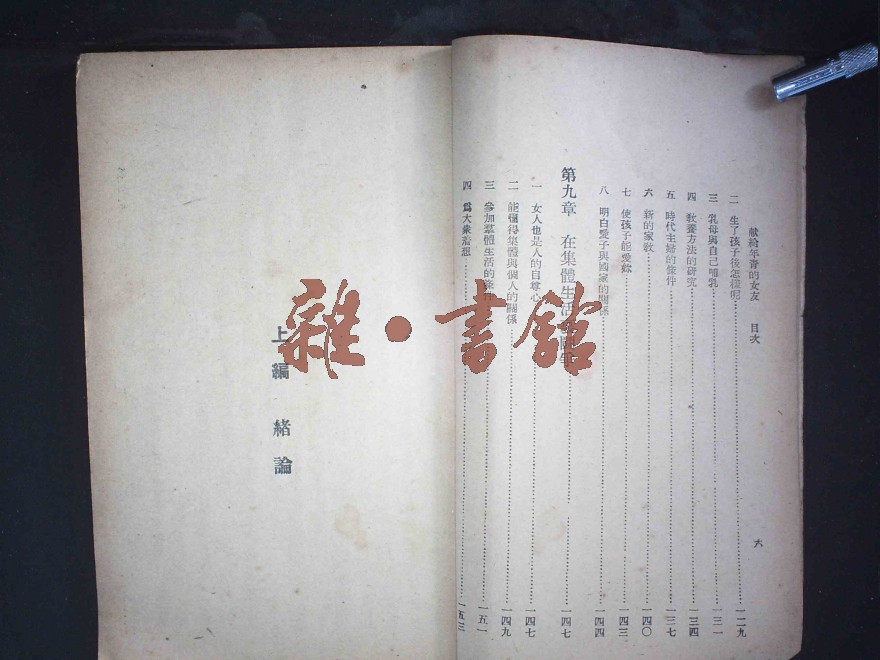 獻給年青的女友 目次
六
二 生了孩子後怎樣呢 一二九
三 乳母與自己哺乳 一三一
四 敎養方法的研究 一三四
五 時代主婦的條件 一三七
六 新的家敎 一四〇
七 使孩子能愛妳 一四三
八 明白愛子與國家的關係 一四四
第九章 在集體生活 一四七
一 女人也是人的自尊心 一四七
二 能懂得集體與個人的關係 一四九
三 參加羣體生活的條件 一五一
四 爲大衆着想 一五三
上編 緒論
雜·書館